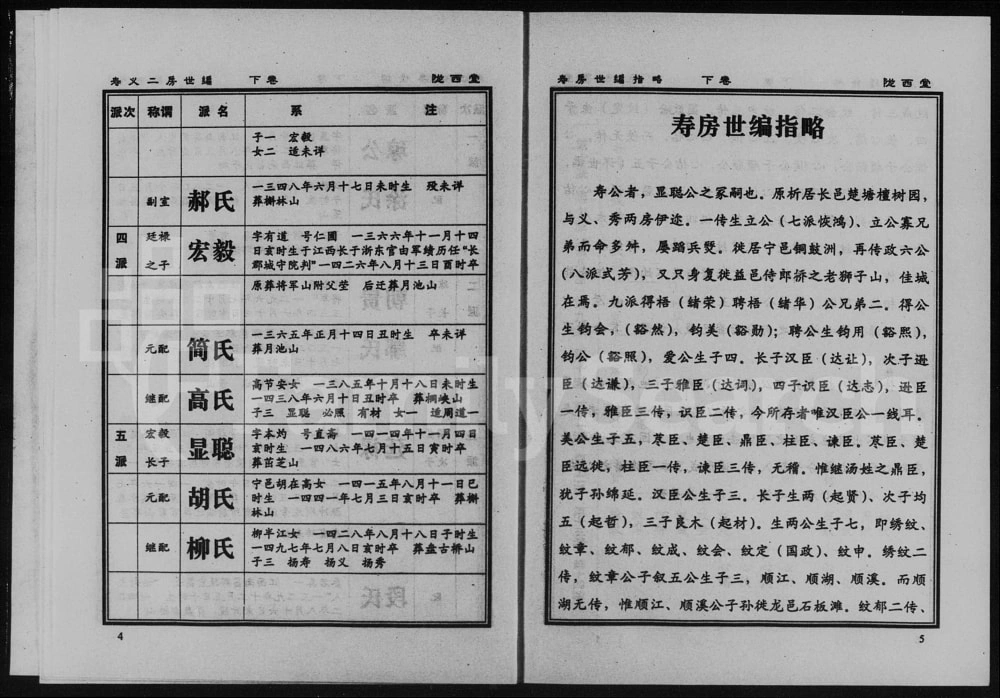 寿义二房世编 下卷 陇西堂
派次 称谓 派名 系 注
子一 宏毅
女二 适未详
副室 郝氏 一三四八年六月十七日未时生 殁未详
葬槲林山
四派 廷椂之子 宏毅 字有道 号仁圃 一三六六年十一月十四
日亥时生于江西长于浙东官由军绩历任"长
郡城守院判"一四二六年八月十三日酉时卒
原葬将军山附父茔 后迁葬月池山
元配 简氏 一三六五年正月十四日丑时生 卒未详
葬月池山
继配 高氏 高节安女 一三八五年十月十八日未时生
一四三八年六月十日丑时卒 葬桐峡山
子三 显聪 必照 有材 女一 适周道一
五派 宏毅长子 显聪 字本灼 号直斋 一四一四年十一月四日
亥时生 一四八六年七月十五日寅时卒
葬茁芝山
元配 胡氏 宁邑胡在高女 一四一五年八月十一日巳
时生 一四四一年七月三日亥时卒 葬槲
林山
继配 柳氏 柳半江女 一四二八年八月十八日子时生
一四九七年七月八日亥时卒 葬盘古桥山
子三 杨寿 杨义 杨秀
4
寿房世编指略 下卷 陇西堂
寿房世编指略
寿公者，显聪公之冢嗣也。原析居长邑楚塘檀树园，
与义、秀两房伊迩。一传生立公（七派恢鸿）、立公寡兄
弟而命多舛，屡蹈兵燹。徙居宁邑铜鼓洲，再传政六公
（八派式芳），又只身复徙益邑侍郎桥之老狮子山，佳城
在焉。九派得梧（绪荣）聘梧（绪华）公兄弟二。得公
生钧会，（豁然），钧美（豁勋）；聘公生钧用（豁熙），
钧公（豁照），爱公生子四。长子汉臣（达让），次子逊
臣（达谦），三子雅臣（达词），四子识臣（达志），逊臣
一传，雅臣三传，识臣二传，今所存者唯汉臣公一线耳。
美公生子五，荩臣、楚臣、鼎臣、柱臣、谏臣。荩臣、楚
臣远徙，柱臣一传，谏臣三传，无稽。惟继汤姓之鼎臣，
犹子孙绵延。汉臣公生子三。长子生两（起贤）、次子均
五（起哲），三子良木（起材）。生两公生子七，即绣纹、
纹章、纹郁、纹成、纹会、纹定（国政）、纹申。绣纹二
传，纹章公子叙五公生子三，顺江、顺湖、顺溪。而顺
湖无传，惟顺江、顺溪公子孙徙龙邑石板滩。纹郁二传、
5
FamilySearch